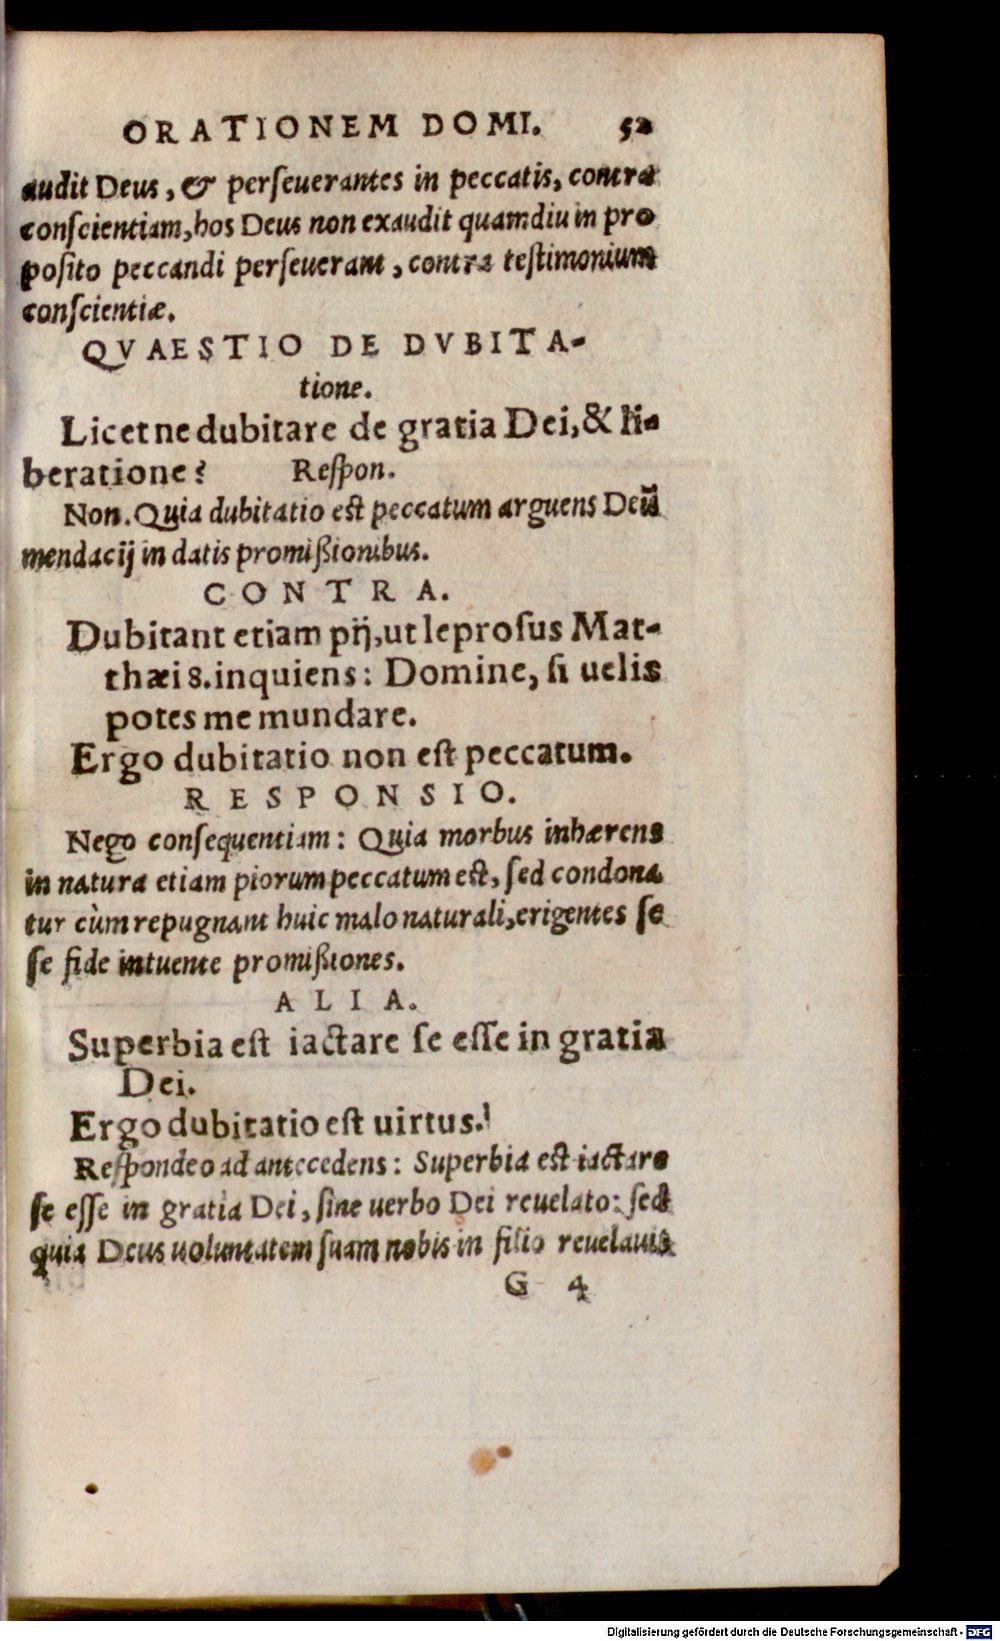 ORATIONEM DOMI. 52
audit Deus, & perseuerantes in peccatis, contra
conscientiam, hos Deus non exaudit quamdiu in pro
posito peccandi perseuerant, contra testimonium
conscientiæ.
QVAESTIO DE DVBITA-
tione.
Licetne dubitare de gratia Dei, & li-
beratione? Respon.
Non. Quia dubitatio est peccatum arguens Deū
mendacij in datis promißionibus.
CONTRA.
Dubitant etiam pij, ut leprosus Mat-
thæi 8. inquiens: Domine, si uelis
potes me mundare.
Ergo dubitatio non est peccatum.
RESPONSIO.
Nego consequentiam: Quia morbus inhærens
in natura etiam piorum peccatum est, sed condona
tur cùm repugnant huic malo naturali, erigentes se
se fide intuente promißiones.
ALIA.
Superbia est iactare se esse in gratia
Dei.
Ergo dubitatio est uirtus.
Respondeo ad antecedens: Superbia est iactare
se esse in gratia Dei, sine uerbo Dei reuelato: sed
quia Deus uoluntatem suam nobis in filio reuelauit
G 4
Digitalisierung gefördert durch die Deutsche Forschungsgemeinschaft - DFG